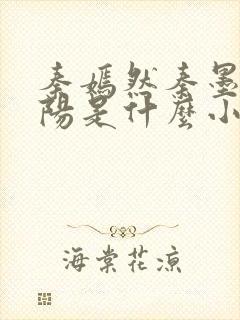 秦嫣然秦墨
陽是什麼小
海棠花涼